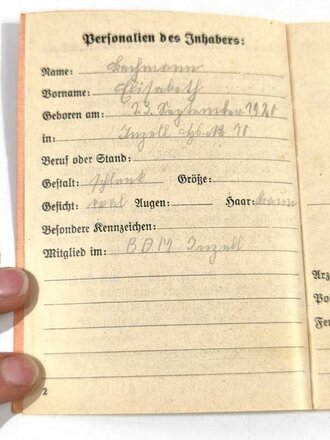 Personalien des Inhabers:
Name: Bachmann
Vorname: Elisabeth
Geboren am: 23. September 1921
in: Inzell Hs. No
Beruf oder Stand:
Gestalt: schlank Größe:
Gesicht: oval Augen: Haar: braun
Besondere Kennzeichen:
Mitglied im: BDM Inzell
2